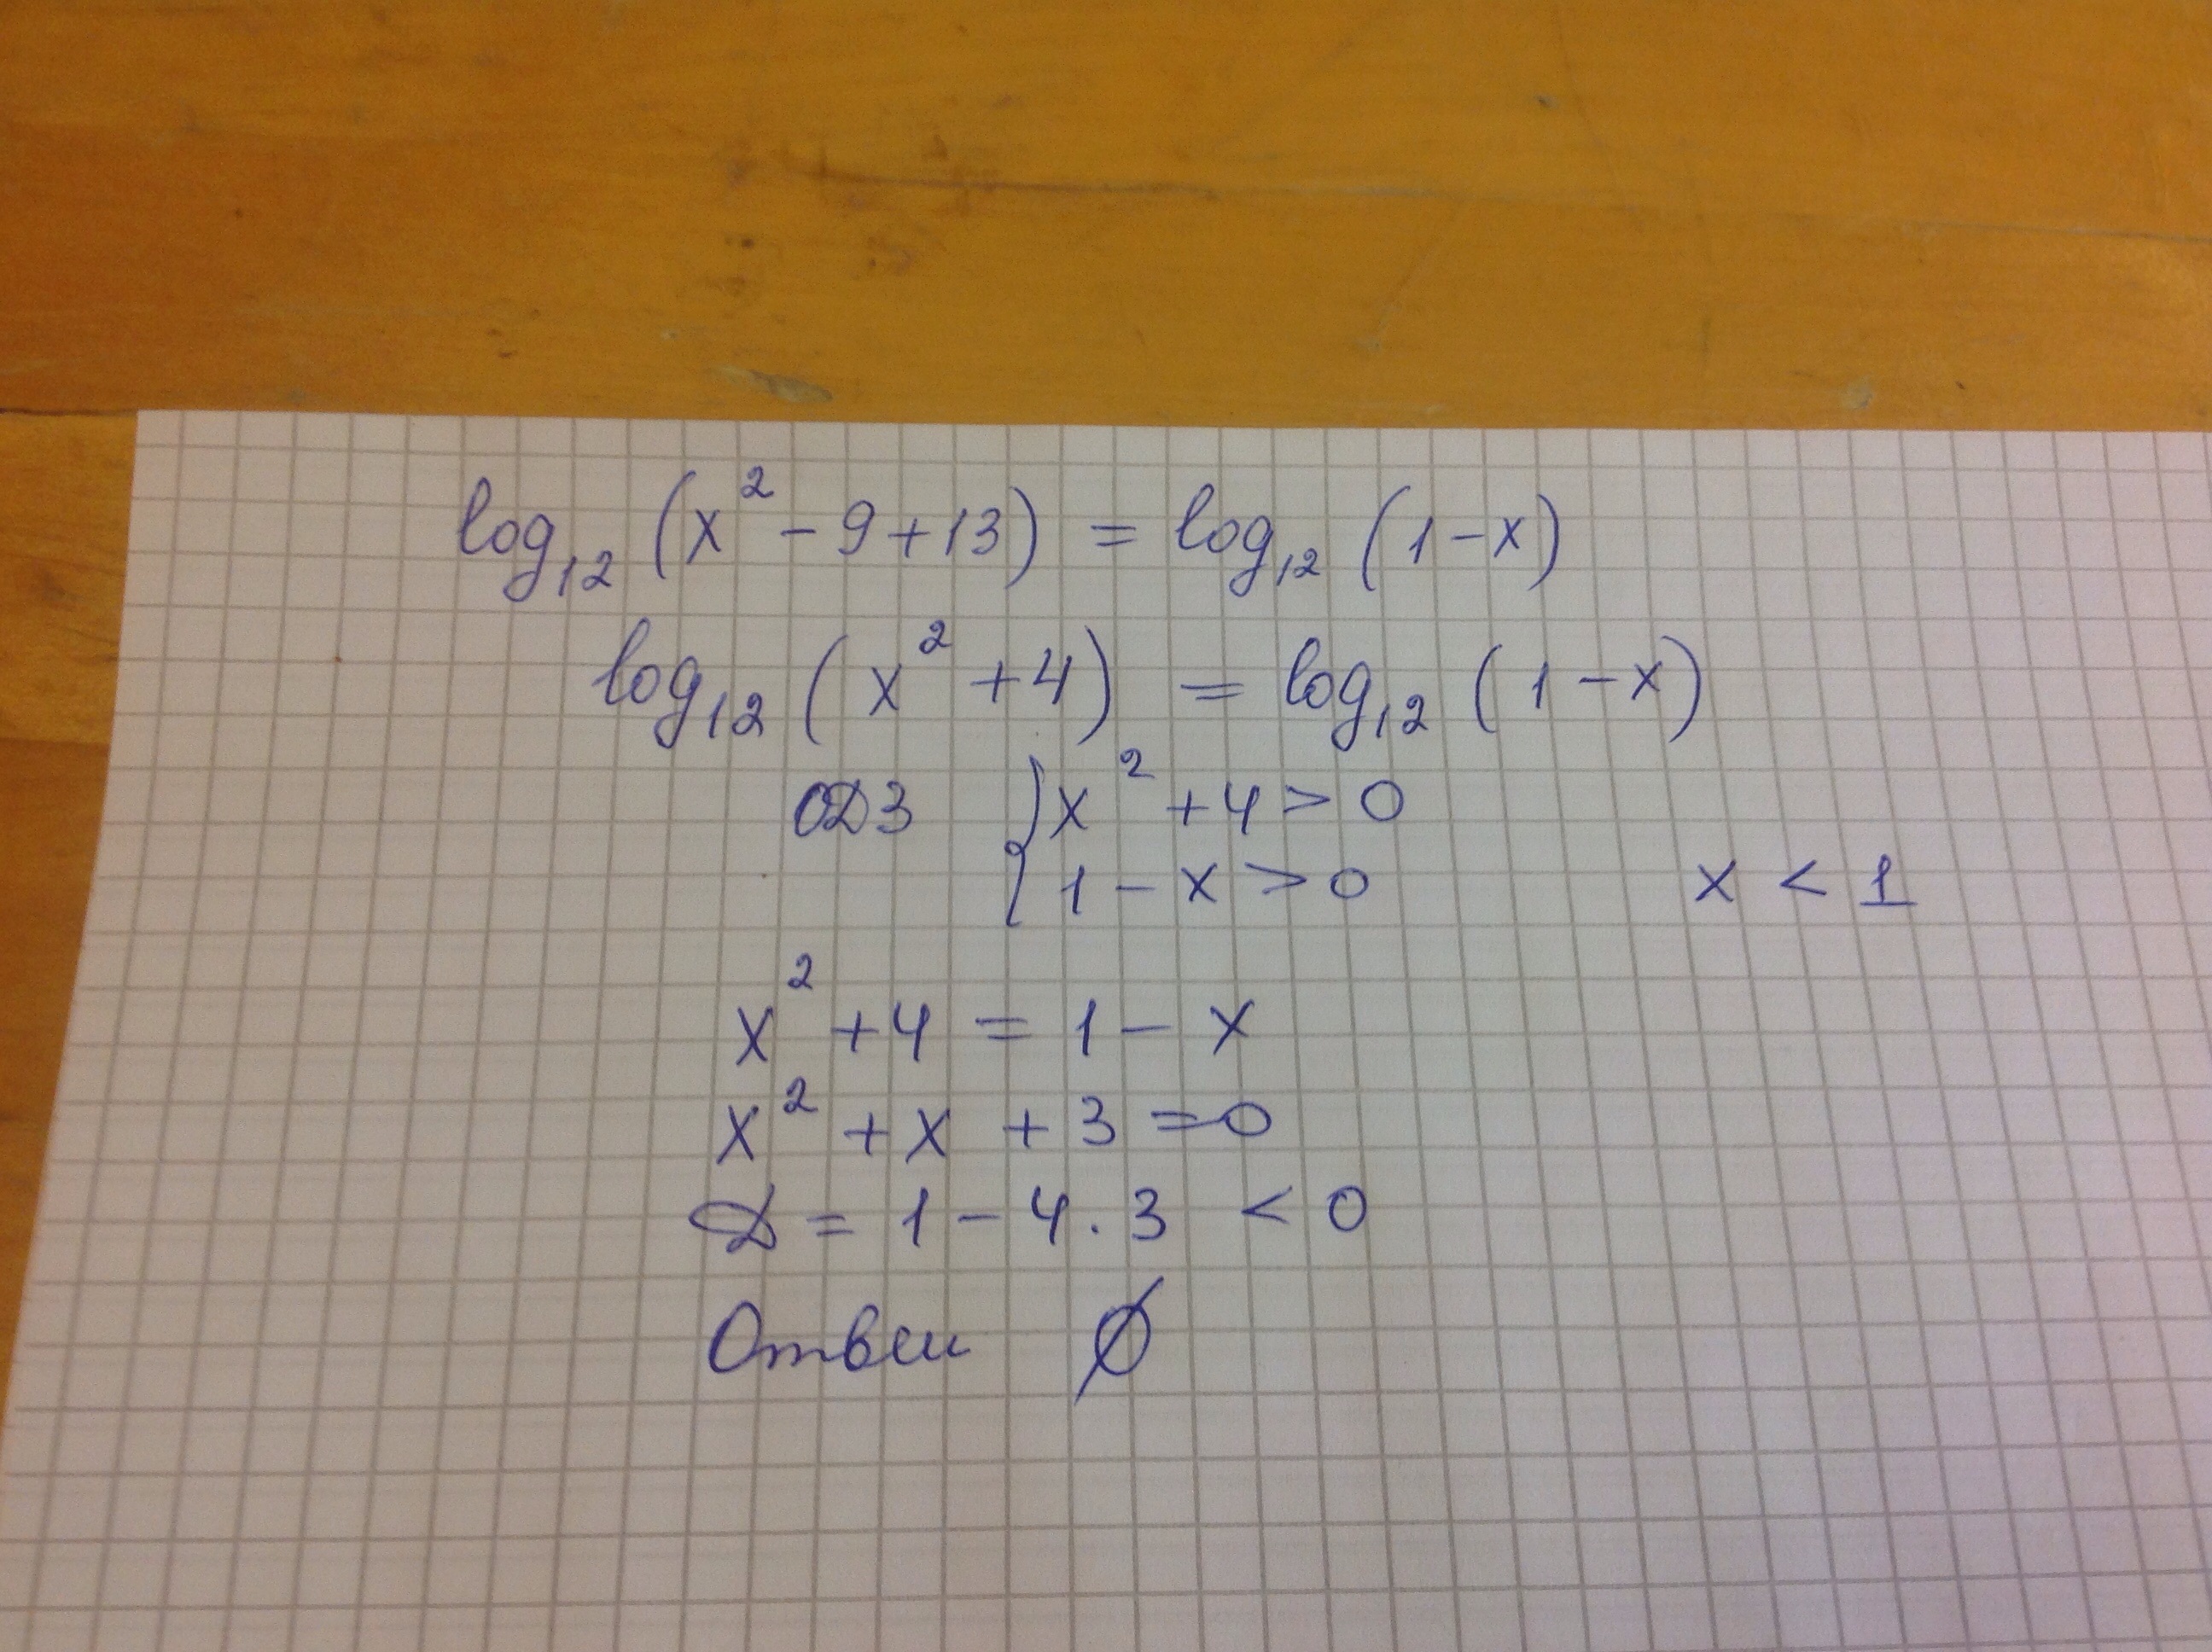 log₁₂ (x² - 9 + 13) = log₁₂ (1 - x)
log₁₂ (x² + 4) = log₁₂ (1 - x)
ОДЗ { x² + 4 > 0
1 - x > 0 x < 1
x² + 4 = 1 - x
x² + x + 3 = 0
Д = 1 - 4 · 3 < 0
Ответ ∅